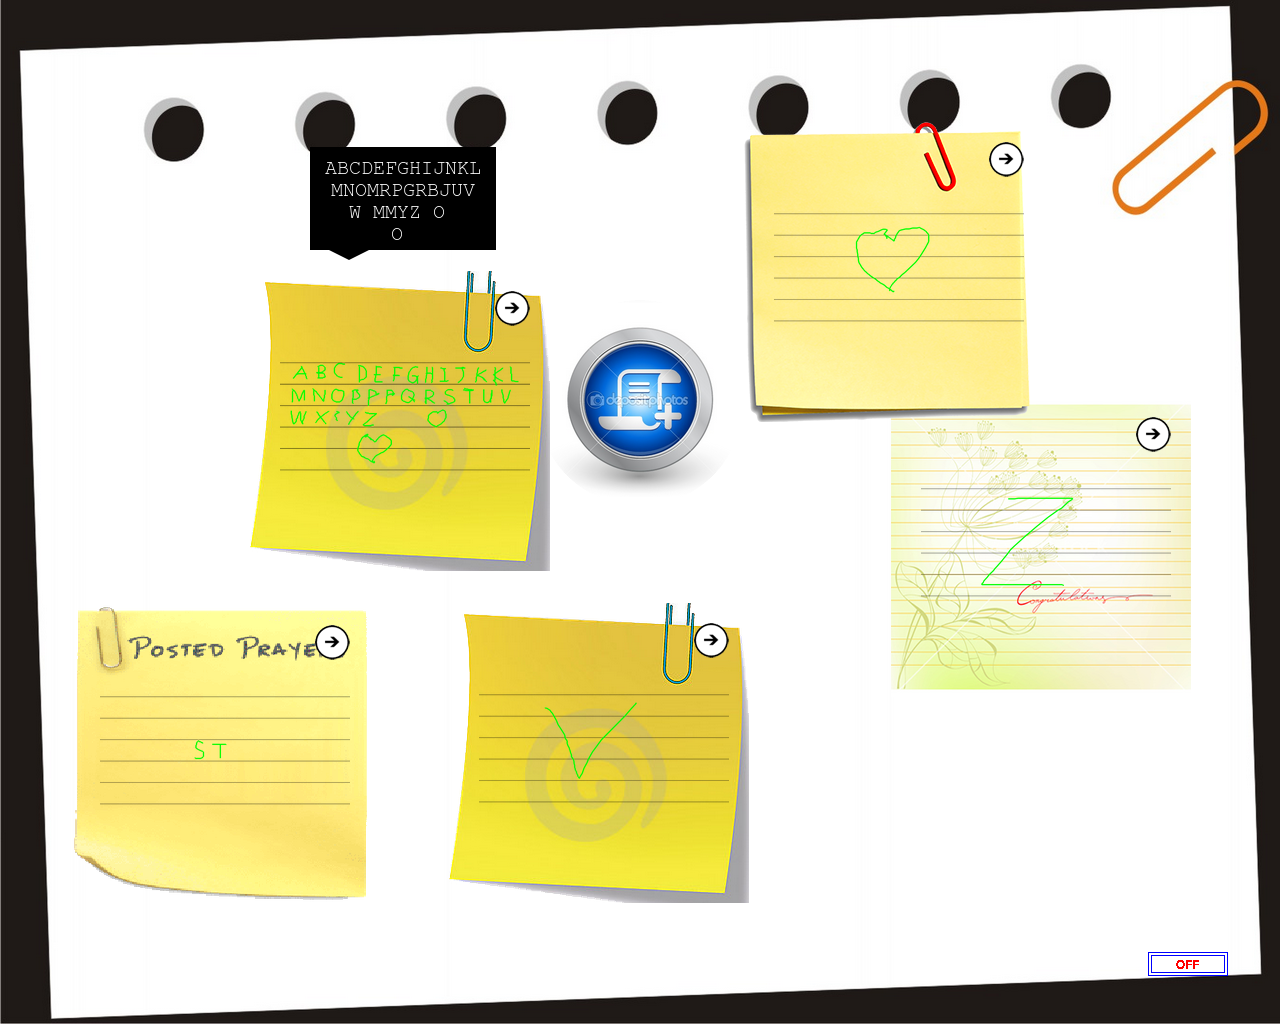 ABCDEFGHIJNKL
MNOMRPGRBJUV
W MMYZ O
O
ABCDEFGHIJKKL
MNOPPPQRSTUV
WXYYZ
depositphotos
Z
Congratulations
POSTED PRAYE
ST
OFF